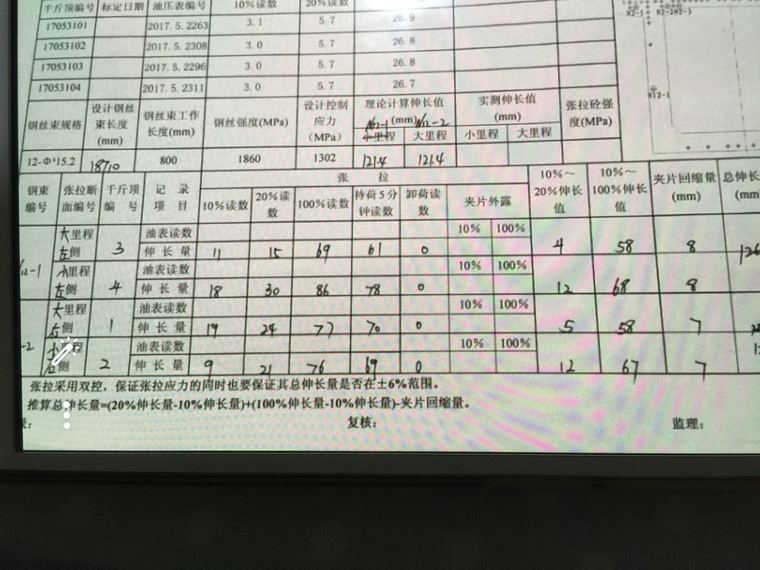 千斤顶编号 标定日期 油压表编号 10%读数 20%读数 100%读数
17053101 2017.5.2263 3.1 5.7 26.9
17053102 2017.5.2308 3.0 5.7 26.8
17053103 2017.5.2296 3.0 5.7 26.8
17053104 2017.5.2311 3.0 5.7 26.7
钢丝束规格 设计钢丝束长度(mm) 钢丝束工作长度(mm) 钢丝强度(MPa) 设计控制应力(MPa) 理论计算伸长值(mm) 实测伸长值(mm) 张拉砼强度(MPa)
N12-1 小里程 N12-2 大里程 小里程 大里程
12-Φˢ15.2 18710 800 1860 1302 121.4 121.4
张 拉
钢束编号 张拉断面编号 千斤顶编号 记录项目 10%读数 20%读数 100%读数 持荷5分钟读数 卸荷读数 夹片外露 10%～20%伸长值 10%～100%伸长值 夹片回缩量(mm) 总伸长(mm
大里程 油表读数 10% 100%
左侧 3 伸长量 11 15 69 61 0 4 58 8 126
N12-1
小里程 油表读数 10% 100%
左侧 4 伸长量 18 30 86 78 0 12 68 8
大里程 油表读数 10% 100%
右侧 1 伸长量 19 24 77 70 0 5 58 7
-2
油表读数 10% 100%
侧 2 伸长量 9 21 76 69 0 12 67 7
张拉采用双控，保证张拉应力的同时也要保证其总伸长量是否在±6%范围。
推算总伸长量=(20%伸长量-10%伸长量)+(100%伸长量-10%伸长量)-夹片回缩量。
复核： 监理：
N12-1